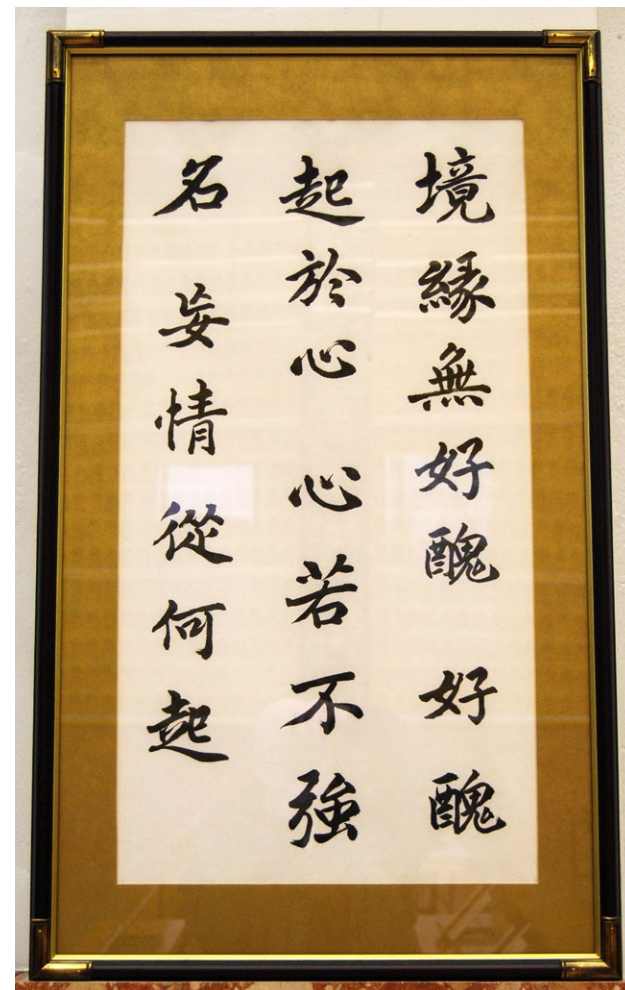 境緣無好醜 好醜
起於心 心若不強
名 妄情從何起